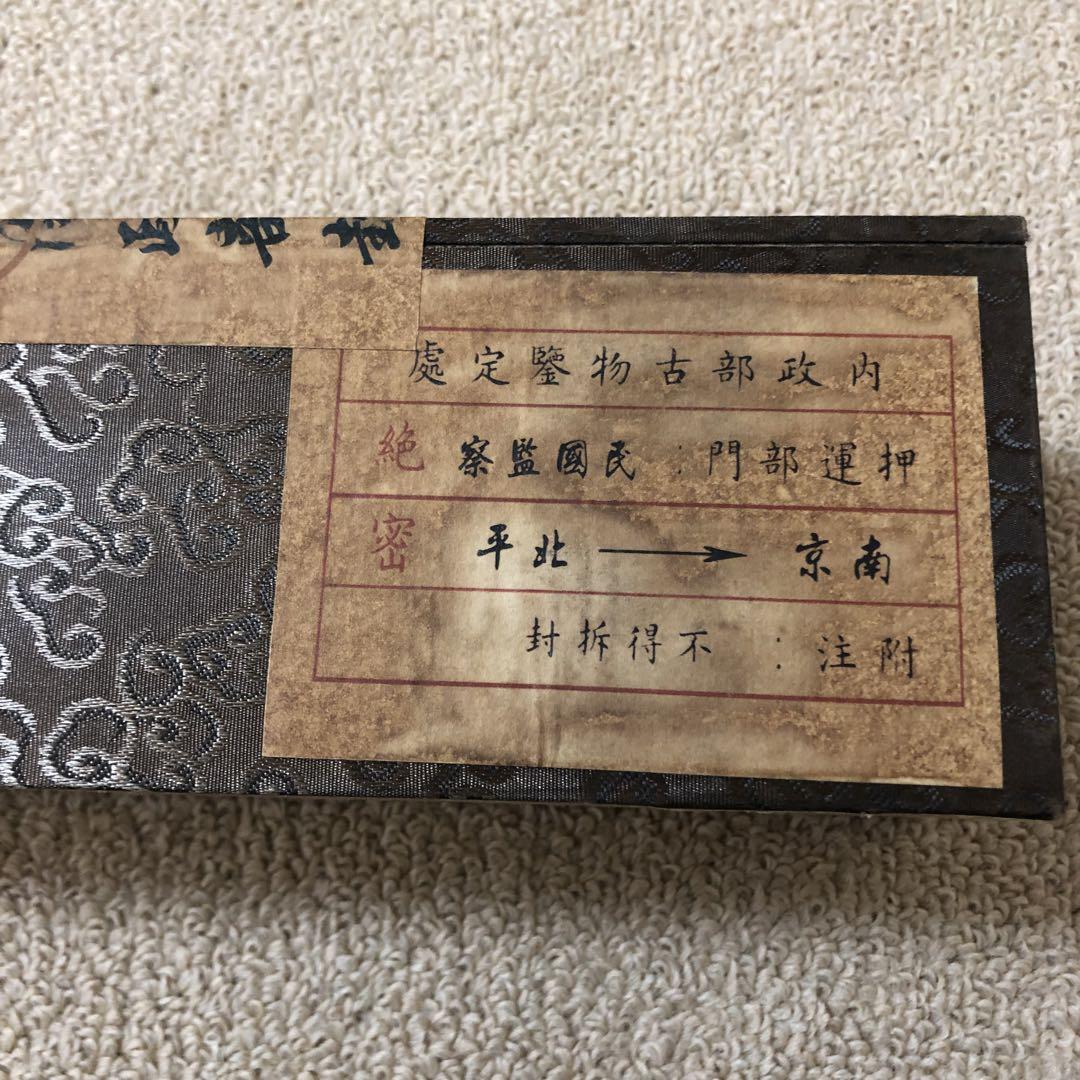 內政部古物鑒定處
押運部門：民國監察
南京 ← 北平
附注：不得拆封
絕密